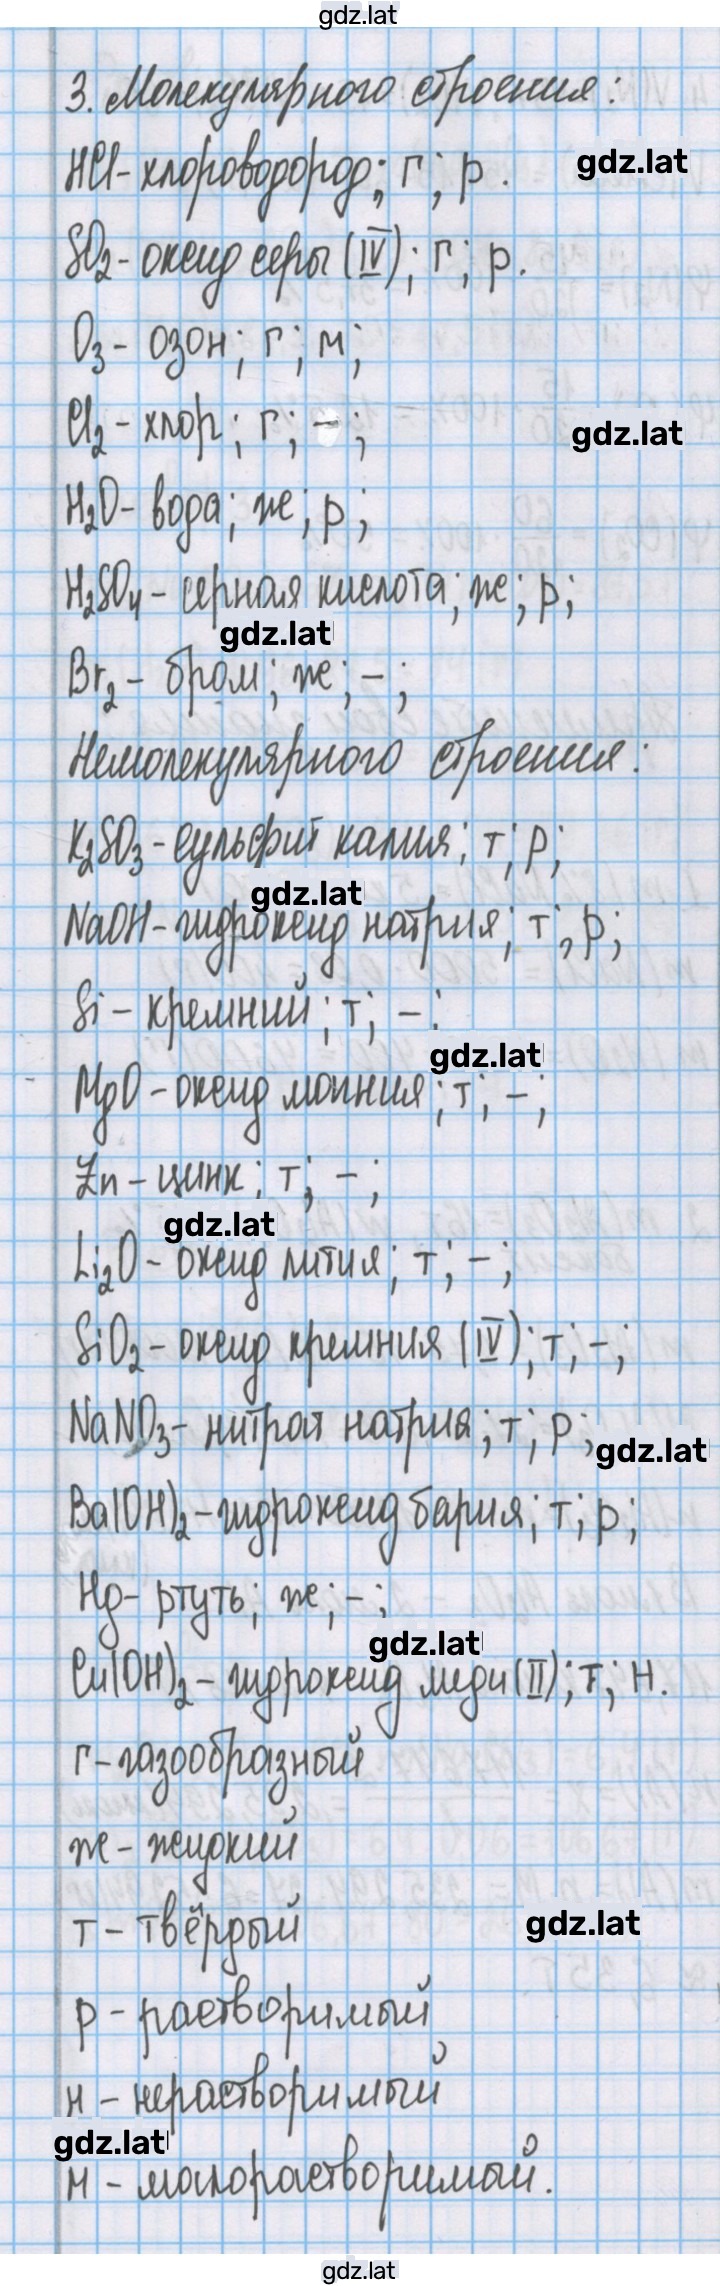 gdz.lat
3. Молекулярного строения:
HCl - хлороводород; г; р.
gdz.lat
SO₂ - оксид серы (IV); г; р.
O₃ - озон; г; м;
Cl₂ - хлор; г; -;
gdz.lat
H₂O - вода; ж; р;
H₂SO₄ - серная кислота; ж; р;
gdz.lat
Br₂ - бром; ж; -;
Немолекулярного строения:
K₂SO₃ - сульфит калия; т; р;
gdz.lat
NaOH - гидроксид натрия; т; р;
Si - кремний; т; -;
gdz.lat
MgO - оксид магния; т; -;
Zn - цинк; т; -;
gdz.lat
Li₂O - оксид лития; т; -;
SiO₂ - оксид кремния (IV); т; -;
NaNO₃ - нитрат натрия; т; р;
gdz.lat
Ba(OH)₂ - гидроксид бария; т; р;
Hg - ртуть; ж; -;
gdz.lat
Cu(OH)₂ - гидроксид меди (II); т; н.
г - газообразный
ж - жидкий
т - твёрдый
gdz.lat
р - растворимый
н - нерастворимый
gdz.lat
м - малорастворимый.
gdz.lat